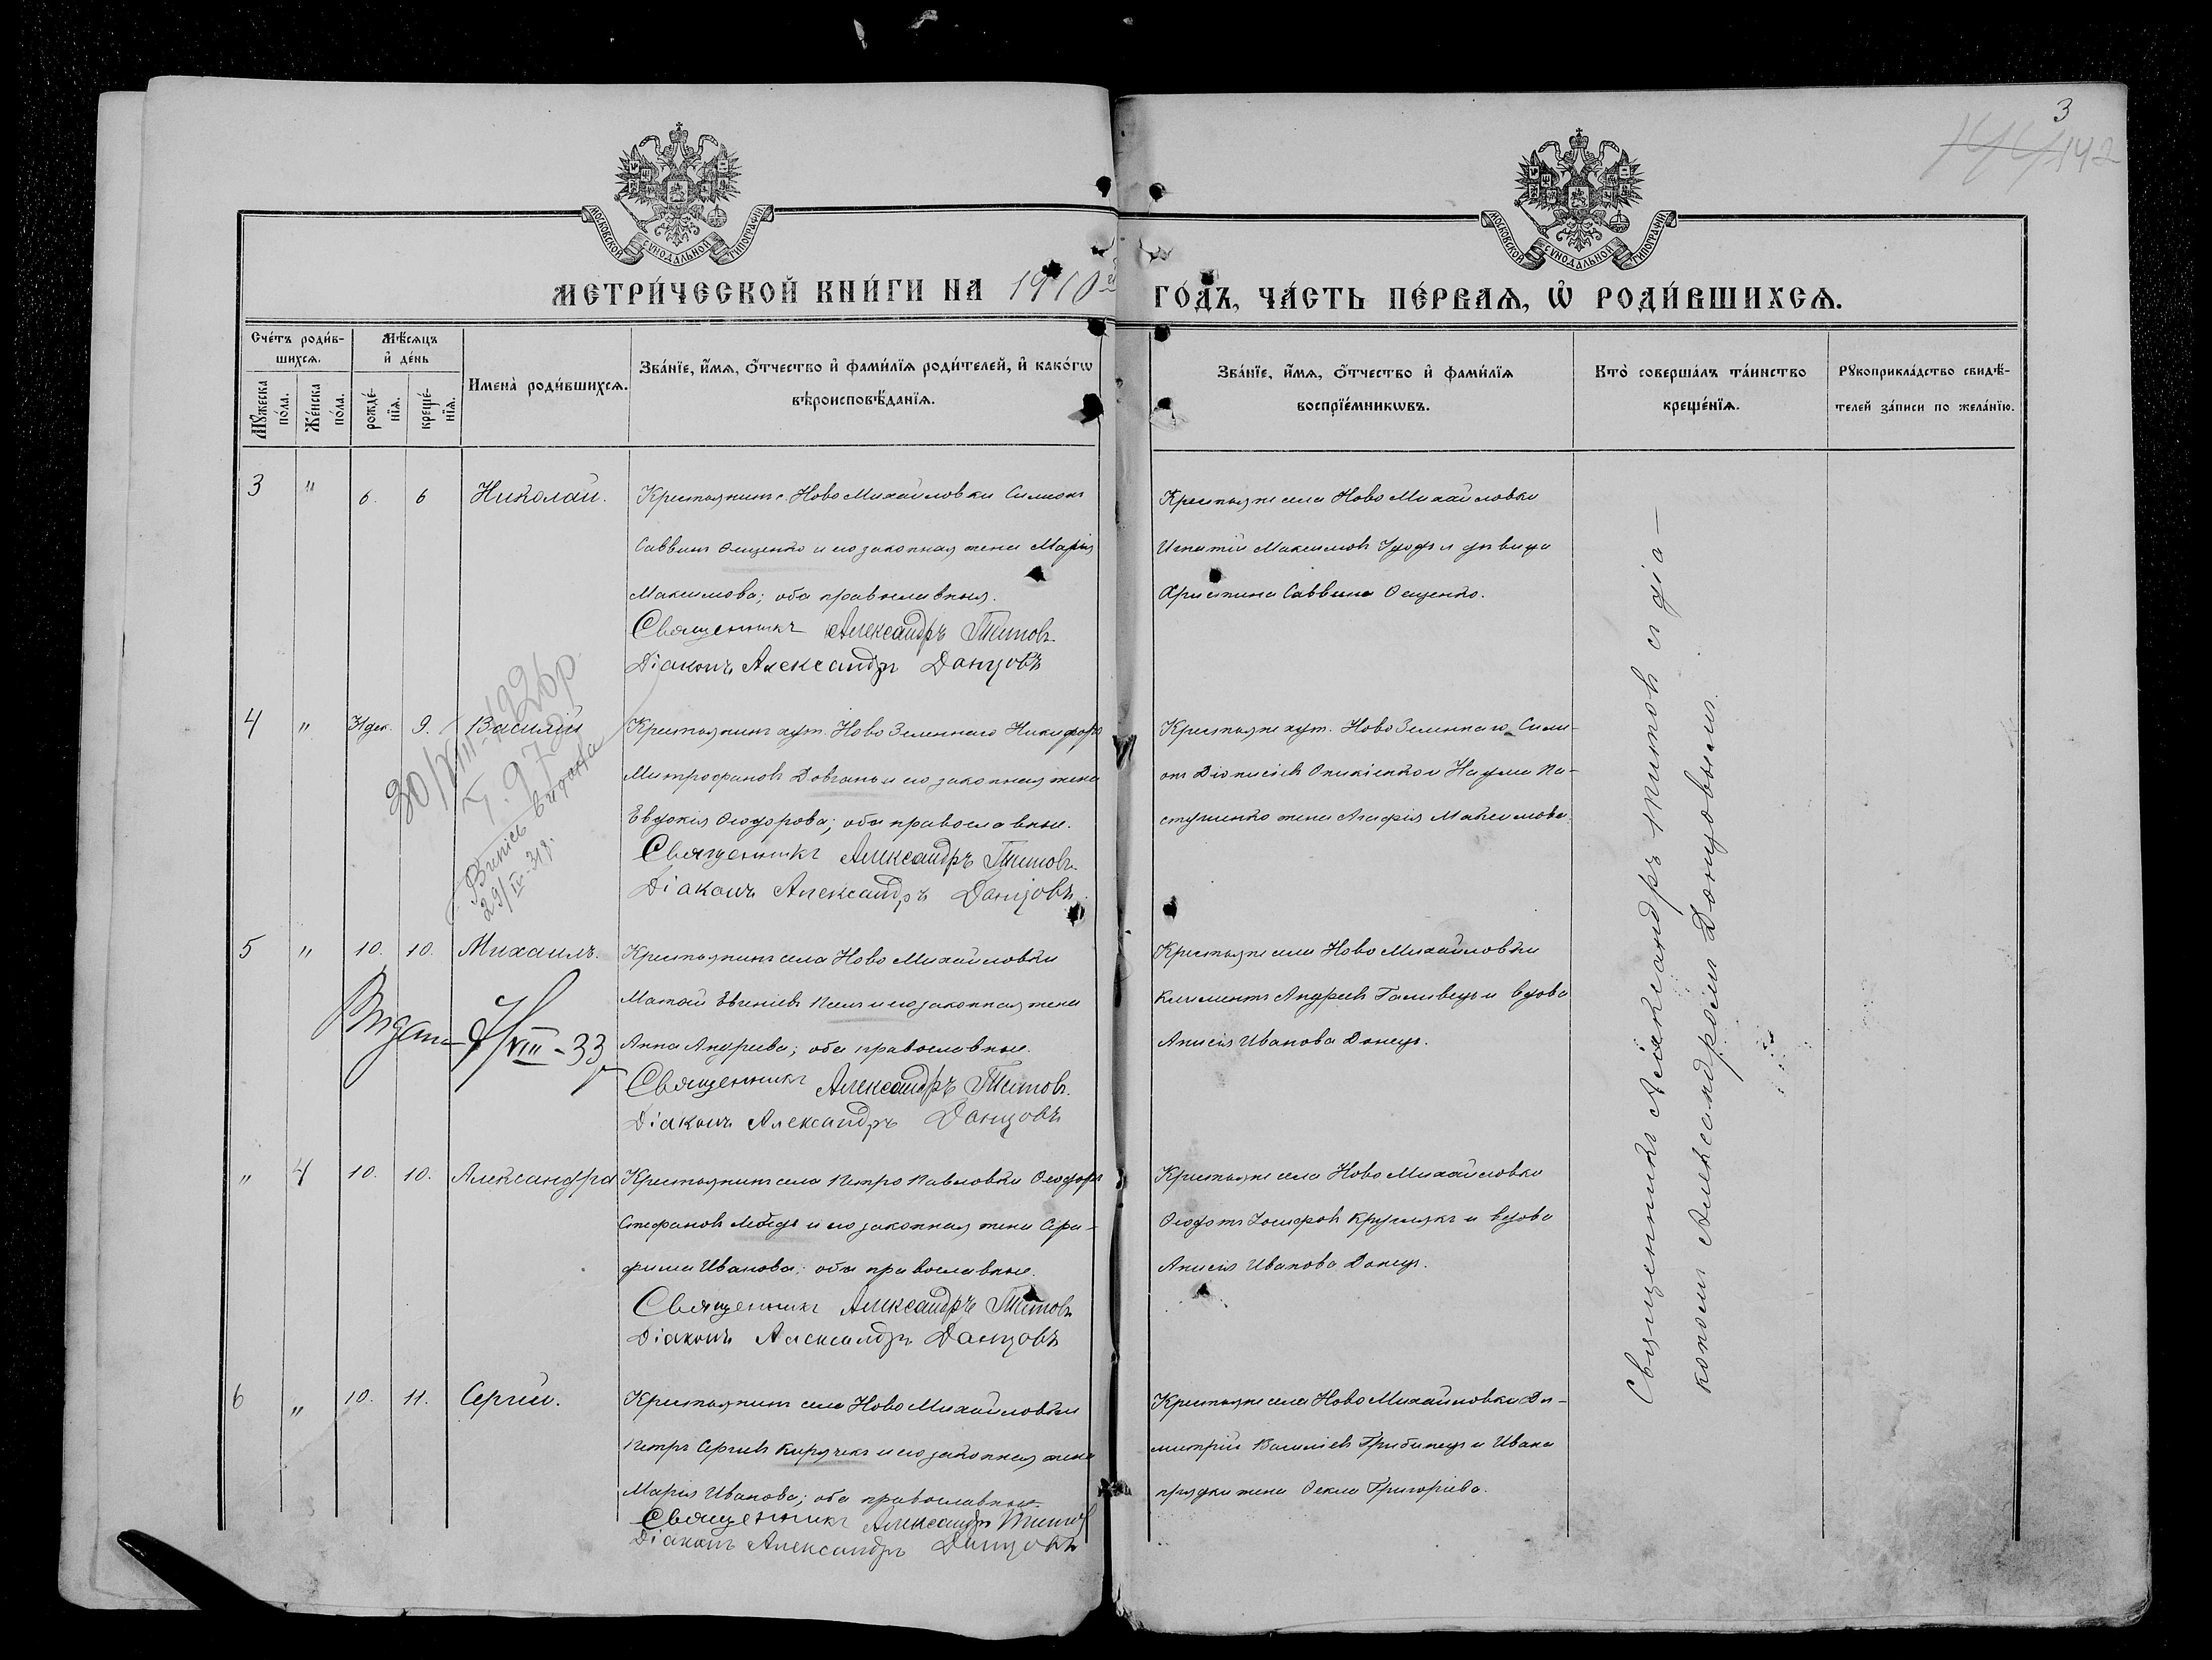 3
142
МОСКОВСКОЙ СѴНОДАЛЬНОЙ ТИПОГРАФІИ
МОСКОВСКОЙ СѴНОДАЛЬНОЙ ТИПОГРАФІИ
МЕТРИ́ЧЕСКОЙ КНИ́ГИ НА 1910й ГО́ДЪ, ЧА́СТЬ ПЕ́РВАѦ, Ѡ҆ РОДИ́ВШИХСѦ.
Сче́тъ роди́в-
шихсѧ.
Мꙋ́жеска по́ла.
Же́нска по́ла.
Мѣ́сяцъ
и҆ де́нь
рожде́-
нїѧ.
креще́-
нїѧ.
Имена̀ роди́вшихсѧ.
Зва́нїе, и҆́мѧ, ѻ҆́тчество и҆ фами́лїѧ роди́телей, и҆ како́гѡ
вѣроисповѣ́данїѧ.
Зва́нїе, и҆́мѧ, ѻ҆́тчество и҆ фами́лїѧ
воспрїе́мникѡвъ.
Кто̀ соверша́лъ та́инство
креще́нїѧ.
Рꙋкоприкла́дство свидѣ́-
телей за́писи по жела́нїю.
3 " 6. 6 Николай.
Крестьянинъ с. Ново Михайловки Симеонъ
Саввинъ Ѳещенко и его законная жена Марія
Максимова; оба православныя.
Священникъ Александръ Титовъ
Діаконъ Александръ Данцовъ
Крестьяне села Ново Михайловки
Игнатій Максимовъ и дѣвица
Христина Саввина Ѳещенко.
4 " 31 дек. 9. Василій
30/VIII-1926р
Витяг видано
29/IV-31р.
Крестьянинъ хут. Ново Зеленнаго Никифоръ
Митрофановъ Довгань и его законная жена
Евдокія Ѳеодорова; оба православные.
Священникъ Александръ Титовъ.
Діаконъ Александръ Данцовъ
Крестьяне хут. Ново Зеленнаго Симе-
онъ Діонисіевъ и Наума Па-
стушенко жена Агафія Максимова.
5 " 10. 10. Михаилъ.
/VIII-33
Крестьянинъ села Ново Михайловки
Евгеніевъ и его законная жена
Анна Андреева; оба православные.
Священникъ Александръ Титовъ.
Діаконъ Александръ Данцовъ
Крестьяне села Ново Михайловки
Климентъ Андреевъ и вдова
Анисія Иванова Донецъ.
" 4 10. 10. Александра
Крестьянинъ села Петро Павловки Ѳеодоръ
Стефановъ Лебедь и его законная жена Сера-
фима Иванова; оба православные.
Священникъ Александръ Титовъ
Діаконъ Александръ Данцовъ
Крестьяне села Ново Михайловки
Ѳеодотъ Іосифовъ Круглякъ и вдова
Анисія Иванова Донецъ.
6 " 10. 11. Сергій.
Крестьянинъ села Ново Михайловки
Петръ Сергіевъ и его законная жена
Марія Иванова; оба православные.
Священникъ Александръ Титовъ
Діаконъ Александръ Данцовъ
Крестьяне села Ново Михайловки Ди-
митрій Василіевъ и Ивана
жена Ѳекла Григоріева.
Священникъ Александръ Титовъ съ діа-
кономъ Александромъ Донцовымъ.